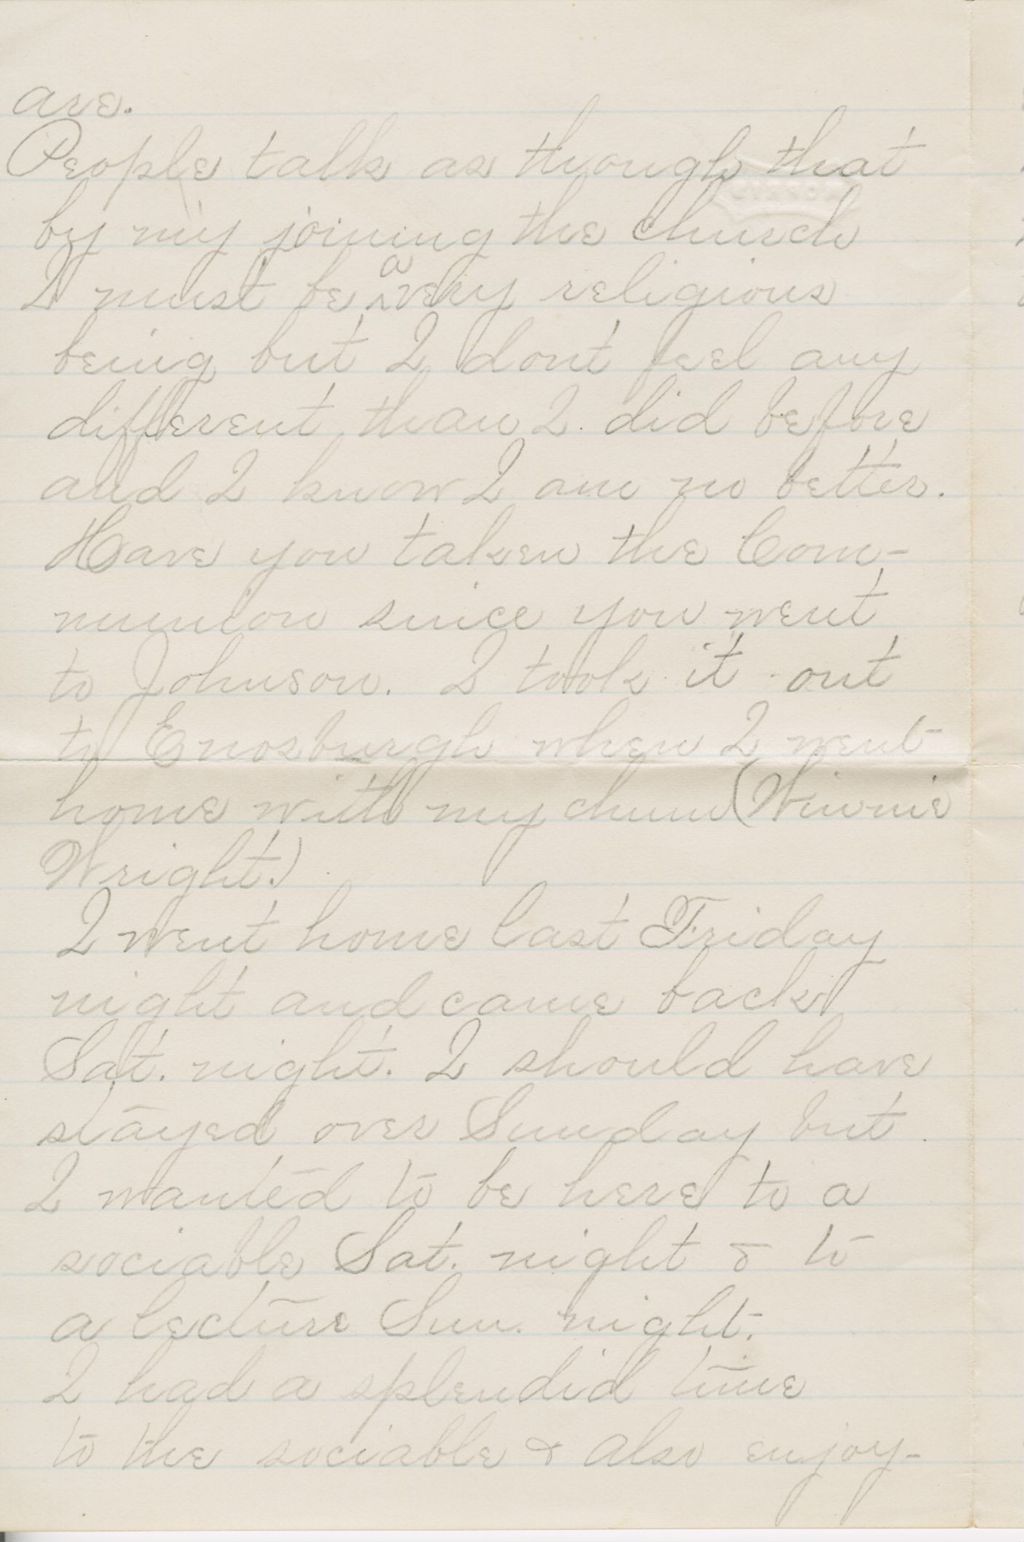 are.
People talk as though that
by my joining the church
I must be a very religious
being but I dont feel any
different than I did before
and I know I am no better.
Have you taken the Com-
munion since you went
to Johnson. I took it out
to Enosburgh when I went
home with my chum (Winnie
Wright.)
I went home last Friday
night and came back
Sat. night. I should have
stayed over Sunday but
I wanted to be here to a
sociable Sat. night & to
a lecture Sun. night.
I had a splendid time
to the sociable & also enjoy-